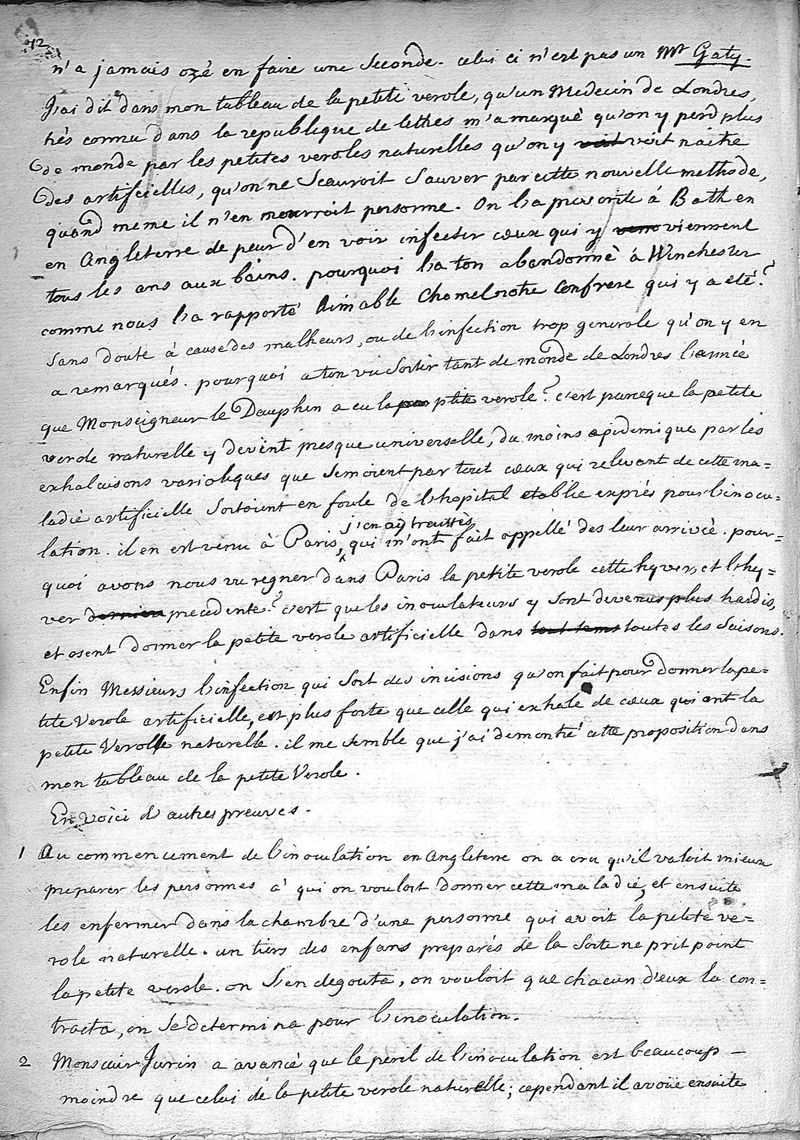 12
n'a jamais ozé en faire une seconde. celui ci n'est pas un Mr Gaty.
J'ai dit dans mon tableau de la petite verole, qu'un Medecin de Londres,
trés connu dans la republique de lettres m'a marqué qu'on y perd plus
de monde par les petites veroles naturelles qu'on y voit voit naitre
des artificielles, qu'on ne scauroit sauver par cette nouvelle methode,
quand meme il n'en mourroit personne. On l'a proscrite à Bath en
en Angleterre de peur d'en voir infecter cœux qui y veno viennent
tous les ans aux bains. pourquoi l'a ton abandonné à Winchester
comme nous l'a rapporté Aimable Chomel notre Confrere qui y a eté?
sans doute à cause des malheurs, ou de l'infection trop generale qu'on y en
a remarqués. pourquoi a ton vu sortir tant de monde de Londres l'année
que Monseigneur le Dauphin a eu la ptite verole? c'est parceque la petite
verole naturelle y devint presque universelle, du moins epidemique par les
exhalaisons varioliques que semoient par tout cœux qui relevant de cette ma=
ladie artificielle sortoient en foule de l'hopital etablie exprés pour l'inocu=
lation. il en est venu à Paris, j'en ay traittés, qui m'ont fait appellé des leur arrivée. pour=
quoi avons nous vu regner dans Paris la petite verole cette hyver, et l'hy=
ver dernier precedente? c'est que les inoculateurs y sont devenus plus hardis,
et osent donner la petite verole artificielle dans tout tems toutes les saisons.
Enfin Messieurs l'infection qui sort des incisions qu'on fait pour donner la pe=
tite Verole artificielle, est plus forte que celle qui exhale de cœux qui ont la
petite Verolle naturelle. il me semble que j'ai demontré cette proposition dans
mon tableau de la petite Verole.
En voici d'autres preuves.
1 Au commencement de l'inoculation en Angleterre on a cru qu'il valoit mieux
preparer les personnes à qui on vouloit donner cette maladie, et ensuite
les enfermer dans la chambre d'une personne qui avoit la petite ve=
role naturelle. un tiers des enfans preparés de la sorte ne prit point
la petite verole. on s'en degouta, on vouloit que chacun d'eux la con=
tracta, on se determina pour l'inoculation.
2 Monsieur Jurin a avancé que le peril de l'inoculation est beaucoup —
moindre que celui de la petite verole naturelle; cependant il avoüe ensuite